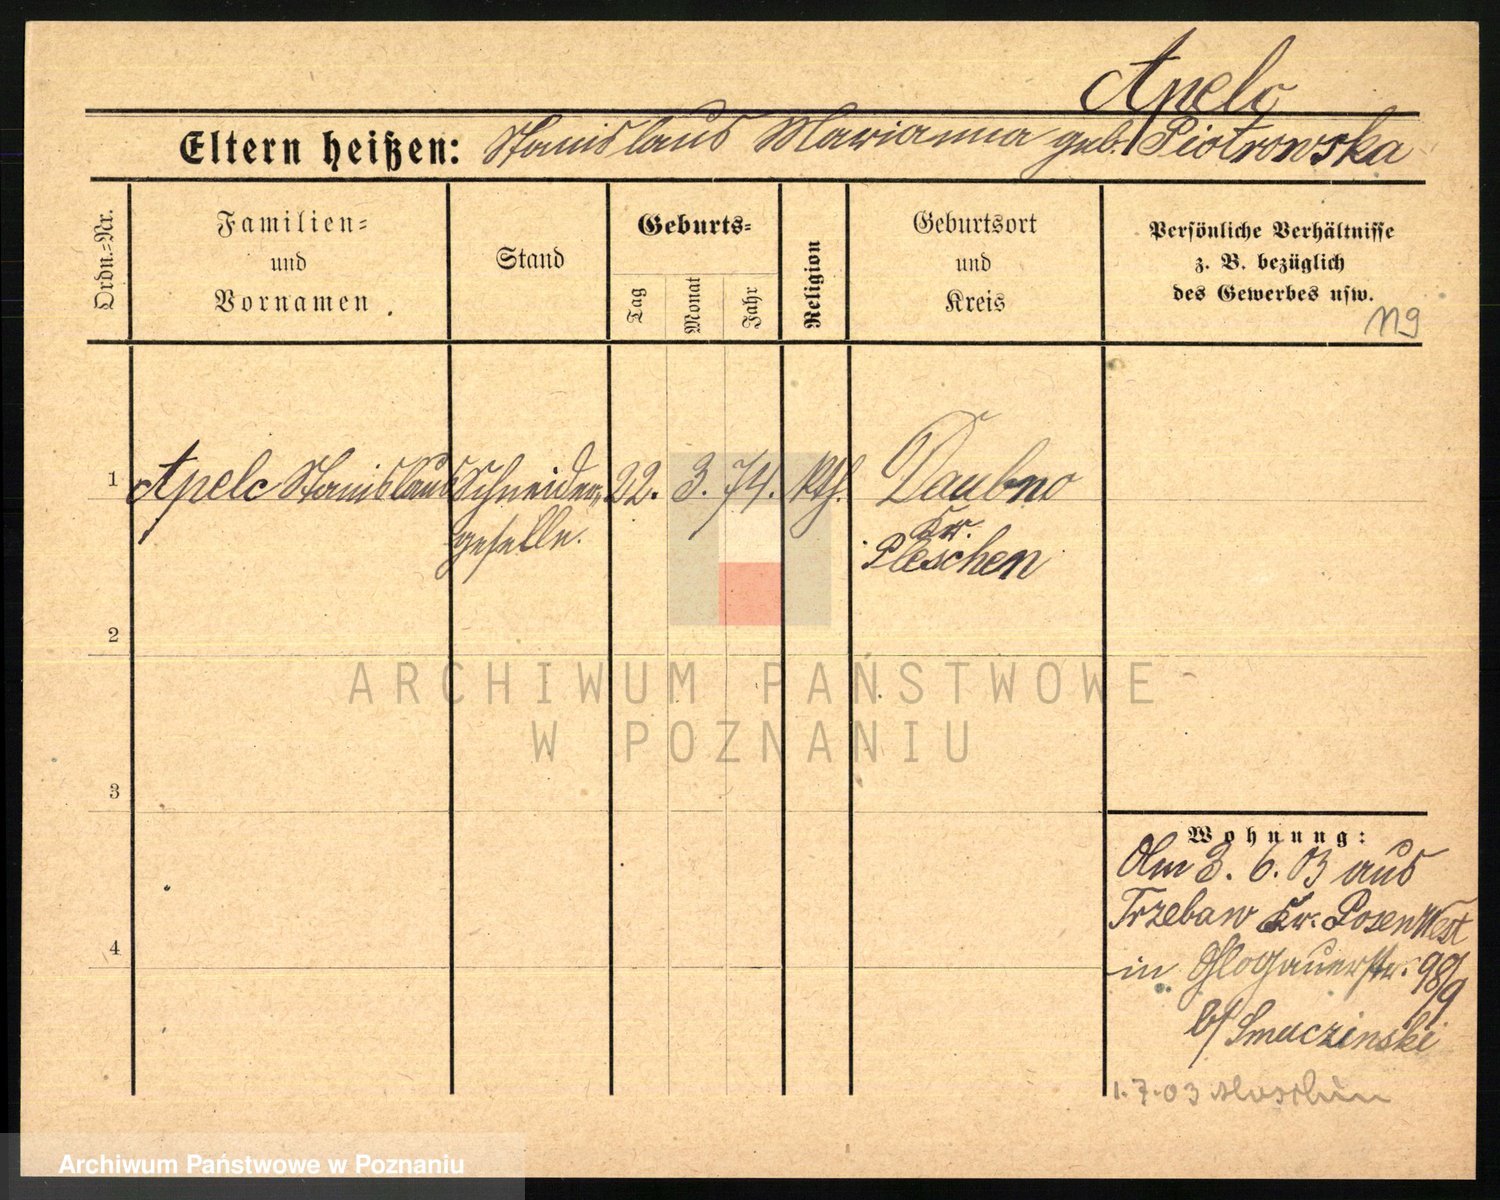 Apelc
Eltern heißen: Stanislaus Marianna geb. Piotrowska
Ordn.=Nr.
Familien=
und
Vornamen
Stand
Geburts=
Tag
Monat
Jahr
Religion
Geburtsort
und
Kreis
Persönliche Verhältnisse
z. B. bezüglich
des Gewerbes usw.
1 Apelc Stanislaus Schneider= 22. 3. 74. kth. Daubno
geselle. Kr.
Pleschen
2
ARCHIWUM PAŃSTWOWE
W POZNANIU
3
Wohnung:
Am 3. 6. 03 aus
Trzebaw Kr. Posen West
4
in Glogauerstr. 98/9
b/ Smuczinski
1.7.03
Archiwum Państwowe w Poznaniu